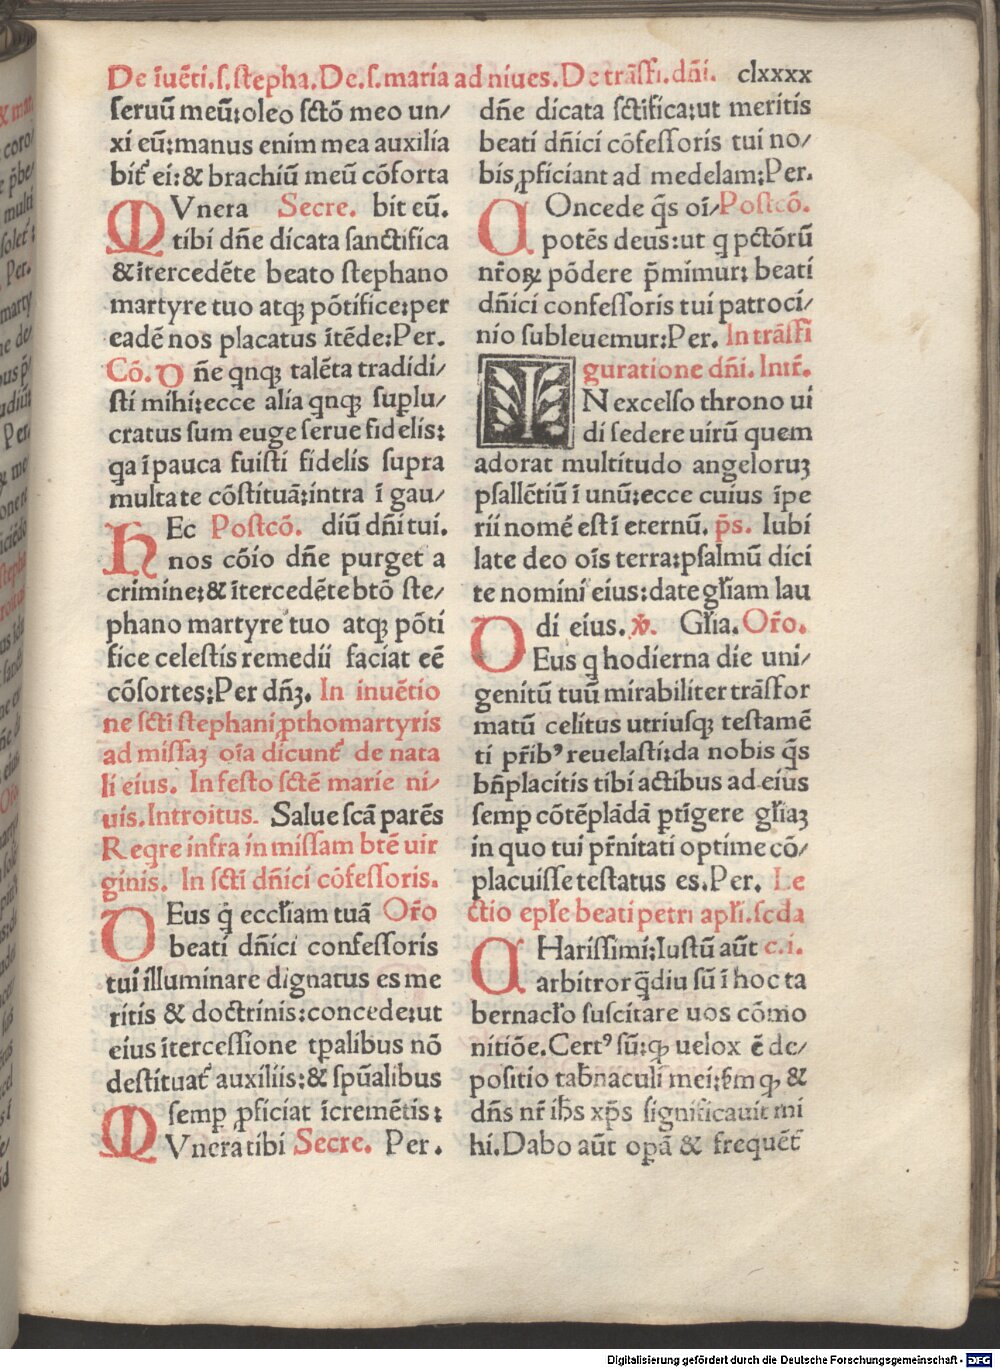 De īuēti.ſ.ſtepha.De.ſ.maria ad niues.De trāſſi.dñi. clxxxx
ſeruū meū:oleo ſctō meo un/
xi eū:manus enim mea auxilia
bit᷑ ei:& brachiū meū cōforta
MVnera Secre. bit eū.
tibi dñe dicata ſanctifica
&ītercedēte beato ſtephano
martyre tuo atqꝫ pōtifice:per
eadē nos placatus ītēde:Per.
Cō. Dñe qnqꝫ talēta tradidi/
ſti mihi:ecce alia qnqꝫ ſuꝑlu/
cratus ſum euge ſerue fidelis:
qa ī pauca fuiſti fidelis ſupra
multa te cōſtituā:intra ī gau/
HEc Poſtcō. diū dñi tui.
nos cōīo dñe purget a
crimine:&ītercedēte btō ſte/
phano martyre tuo atqꝫ pōti
fice celeſtis remedii faciat eē
cōſortes:Per dñꝫ. In inuētio
ne ſcti ſtephani ꝓthomartyris
ad miſſaꝫ oīa dicunt᷑ de nata
li eius. In feſto ſctē marie ni/
uis.Introitus. Salue ſcā parēs
Reqre infra in miſſam btē uir
ginis. In ſcti dñici cōfeſſoris.
DEus q̇ eccl̄iam tuā Or̄o
beati dñici confeſſoris
tui illuminare dignatus es me
ritis & doctrinis:concede:ut
eius īterceſſione tꝑalibus nō
deſtituat᷑ auxiliis:& ſpūalibus
ſemꝑ ꝓficiat īcremētis:
MVnera tibi Secre. Per.
dñe dicata ſctifica:ut meritis
beati dñici cōfeſſoris tui no/
bis ꝓficiant ad medelam:Per.
COncede q̄s oī/ Poſtcō.
potēs deus:ut q pctōrū
nr̄oꝝ pōdere p̄mimur: beati
dñici confeſſoris tui patroci/
nio ſubleuemur:Per. In trāſſi
guratione dñi. Intr̄.
IN excelſo throno ui
di ſedere uirū quem
adorat multitudo angeloruꝫ
pſallētiū ī unū:ecce cuius īpe
rii nomē eſt ī eternū. p̄s. Iubi
late deo oīs terra:pſalmū dici
te nomini eius:date gl̄iam lau
di eius. ℣. Gl̄ia. Or̄o.
DEus q hodierna die uni/
genitū tuū mirabiliter trāſfor
matū celitus utriuſqꝫ teſtamē
ti pr̄ibꝰ reuelaſti:da nobis q̄s
bn̄placitis tibi actibus ad eius
ſemꝑ cōtēplādā ꝑtīgere gl̄iaꝫ
in quo tui pr̄nitati optime cō/
placuiſſe teſtatus es.Per. Le
ctio epl̄e beati petri apl̄i.ſcda
CHariſſimi:Iuſtū aūt c.i.
arbitror q̄diu ſū ī hoc ta
bernacl̄o ſuſcitare uos cōmo
nitiōe.Certꝰ ſū:qꝙ uelox ē de/
poſitio tab̄naculi mei:ẜm qꝙ &
dn̄s nr̄ ih̄s xp̄s ſignificauit mi
hi.Dabo aūt operā & frequēt᷑
Digitalisierung gefördert durch die Deutsche Forschungsgemeinschaft - DFG